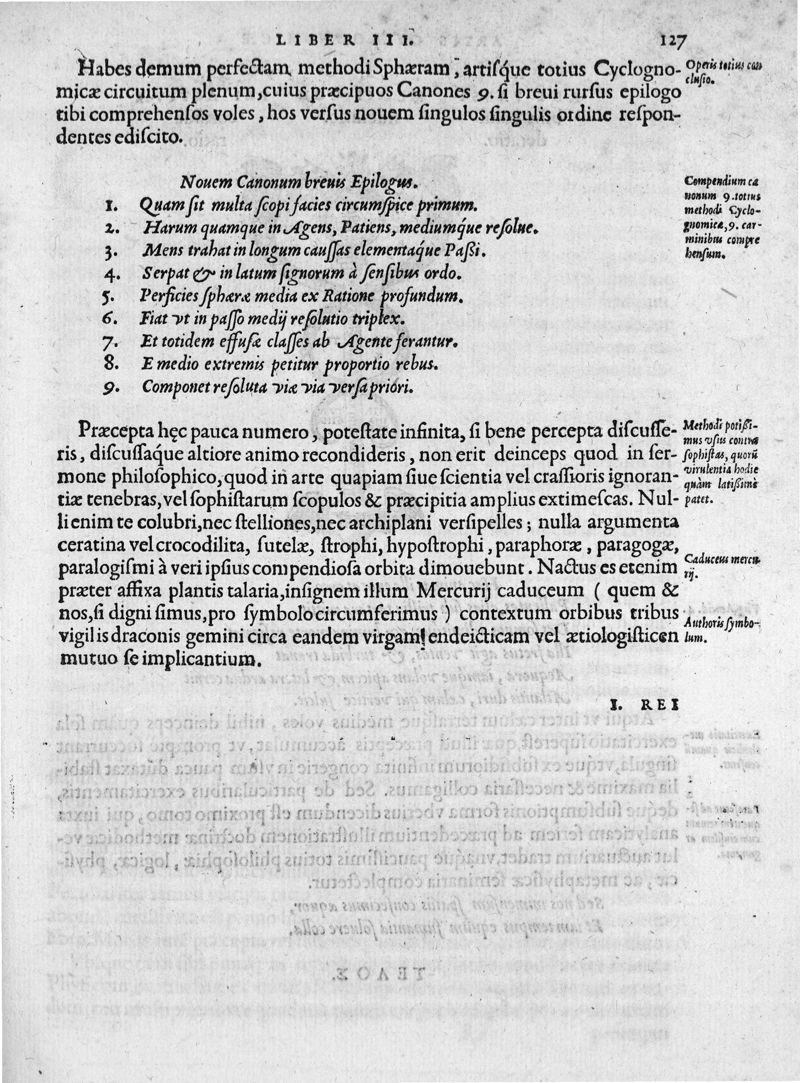 LIBER III. 127
Habes demum perfectam methodi Sphæram, artisq́ue totius Cyclogno-
micæ circuitum plenum, cuius præcipuos Canones 9. si breui rursus epilogo
tibi comprehensos voles, hos versus nouem singulos singulis ordine respon-
dentes ediscito.
Operis totius con
clusio.
Nouem Canonum breuis Epilogus.
1. Quam sit multa scopi facies circumspice primum.
2. Harum quamque in Agens, Patiens, mediumque resolue.
3. Mens trahat in longum caussas elementaq́ue Passi.
4. Serpat & in latum signorum à sensibus ordo.
5. Perficies sphæræ media ex Ratione profundum.
6. Fiat vt in passo medij resolutio triplex.
7. Et totidem effusæ classes ab Agente ferantur.
8. E medio extremis petitur proportio rebus.
9. Componet resoluta viæ via versa priori.
Compendium ca
nonum 9. totius
methodi Cyclo-
gnomicæ, 9. car-
minibus compre
hensum.
Præcepta hęc pauca numero, potestate infinita, si bene percepta discusse-
ris, discussaque altiore animo recondideris, non erit deinceps quod in ser-
mone philosophico, quod in arte quapiam siue scientia vel crassioris ignoran-
tiæ tenebras, vel sophistarum scopulos & præcipitia amplius extimescas. Nul-
li enim te colubri, nec stelliones, nec archiplani versipelles; nulla argumenta
ceratina vel crocodilita, sutelæ, strophi, hypostrophi, paraphoræ, paragogæ,
paralogismi à veri ipsius compendiosa orbita dimouebunt. Nactus es etenim
præter affixa plantis talaria, insignem illum Mercurij caduceum (quem &
nos, si digni simus, pro symbolo circumferimus) contextum orbibus tribus
vigilis draconis gemini circa eandem virgam endeicticam vel ætiologisticen
mutuo se implicantium.
Methodi potißi-
mus vsus contra
sophistas, quorū
virulentia hodie
quàm latißimè
patet.
Caduceus mercu
rij.
Authoris symbo-
lum.
I. REI